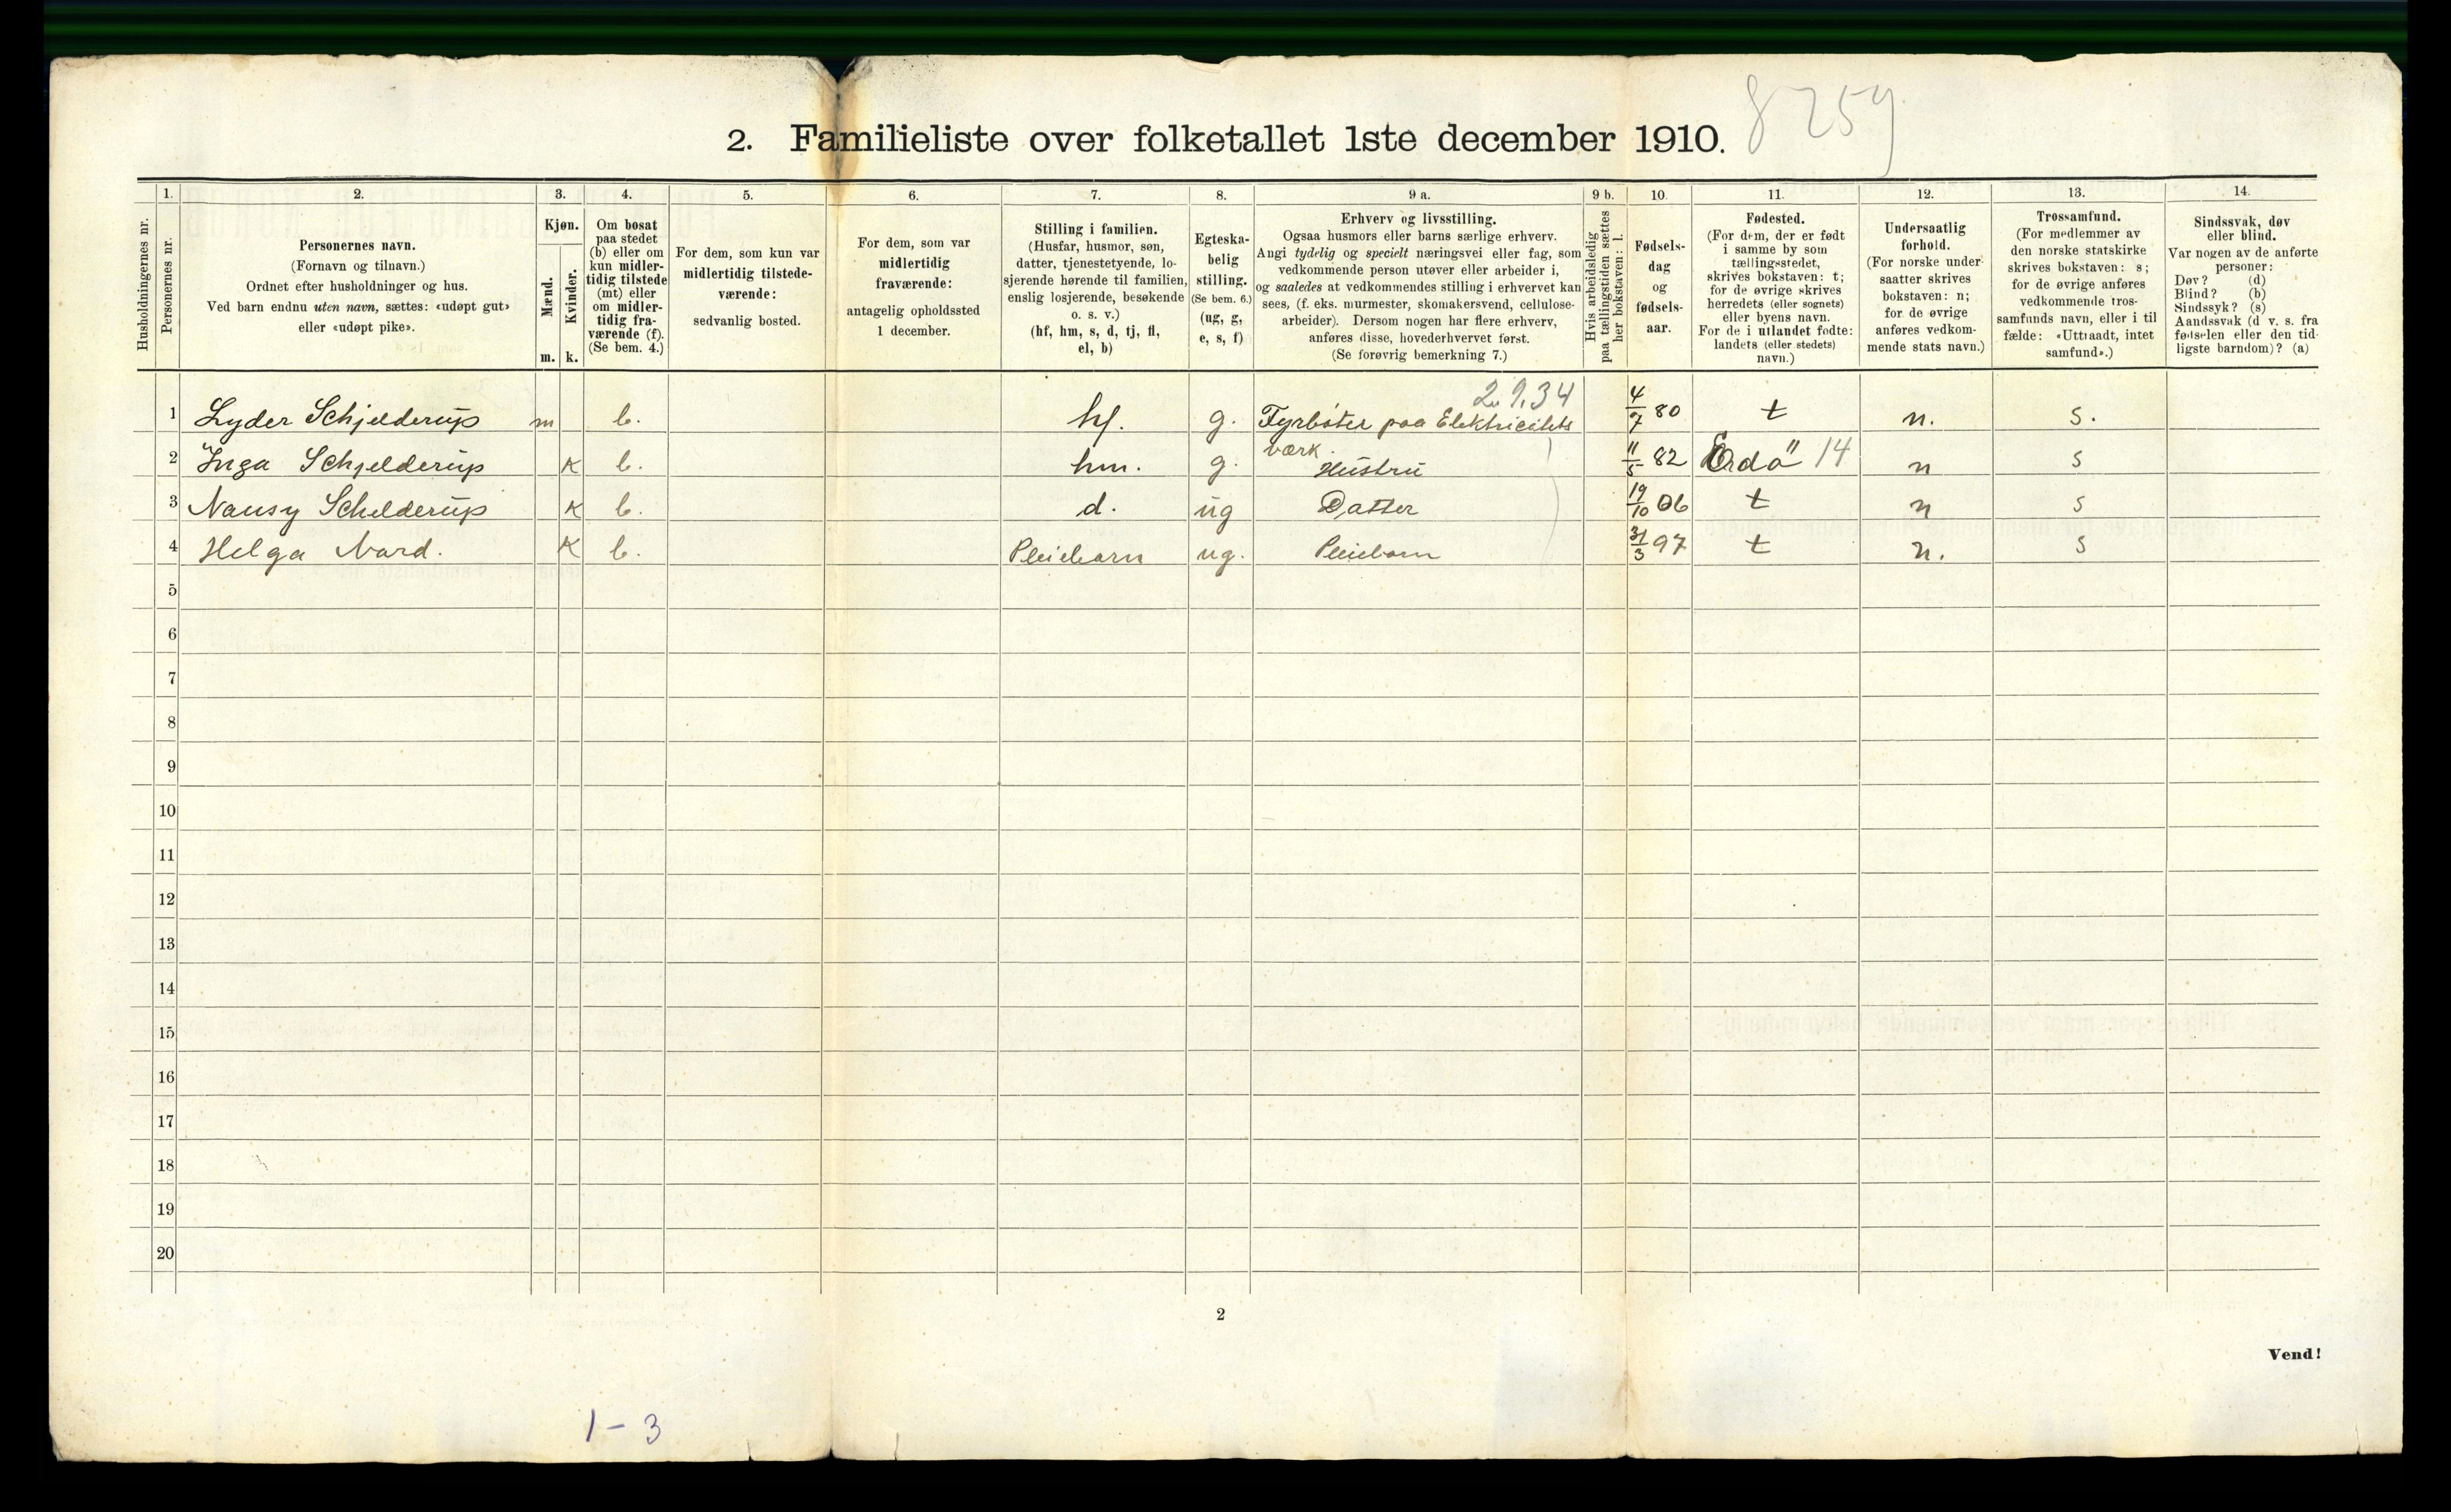 8259
2. Familieliste over folketallet 1ste december 1910.
Husholdningernes nr.
1.
Personernes nr.
2.
Personernes navn.
(Fornavn og tilnavn.)
Ordnet efter husholdninger og hus.
Ved barn endnu uten navn, sættes: «udøpt gut»
eller «udøpt pike».
3.
Kjøn.
Mænd.
Kvinder.
m. k.
4.
Om bosat
paa stedet
(b) eller om
kun midler-
tidig tilstede
(mt) eller
om midler-
tidig fra-
værende (f).
(Se bem. 4.)
5.
For dem, som kun var
midlertidig tilstede-
værende:
sedvanlig bosted.
6.
For dem, som var
midlertidig
fraværende:
antagelig opholdssted
1 december.
7.
Stilling i familien.
(Husfar, husmor, søn,
datter, tjenestetyende, lo-
sjerende hørende til familien,
enslig losjerende, besøkende
o. s. v.)
(hf, hm, s, d, tj, fl,
el, b)
8.
Egteska-
belig
stilling.
(Se bem. 6.)
(ug, g,
e, s, f)
9 a.
Erhverv og livsstilling.
Ogsaa husmors eller barns særlige erhverv.
Angi tydelig og specielt næringsvei eller fag, som
vedkommende person utøver eller arbeider i,
og saaledes at vedkommendes stilling i erhvervet kan
sees, (f. eks. murmester, skomakersvend, cellulose-
arbeider). Dersom nogen har flere erhverv,
anføres disse, hovederhvervet først.
(Se forøvrig bemerkning 7.)
9 b.
Hvis arbeidsledig
paa tællingstiden sættes
her bokstaven: l.
10.
Fødsels-
dag
og
fødsels-
aar.
11.
Fødested.
(For dem, der er født
i samme by som
tællingsstedet,
skrives bokstaven: t;
for de øvrige skrives
herredets (eller sognets)
eller byens navn.
For de i utlandet fødte:
landets (eller stedets)
navn.)
12.
Undersaatlig
forhold.
(For norske under-
saatter skrives
bokstaven: n;
for de øvrige
anføres vedkom-
mende stats navn.)
13.
Trossamfund.
(For medlemmer av
den norske statskirke
skrives bokstaven: s;
for de øvrige anføres
vedkommende tros-
samfunds navn, eller i til-
fælde: «Uttraadt, intet
samfund».)
14.
Sindssvak, døv
eller blind.
Var nogen av de anførte
personer:
Døv? (d)
Blind? (b)
Sindssyk? (s)
Aandssvak (d. v. s. fra
fødselen eller den tid-
ligste barndom)? (a)
2.9.34
1 Lyder Schjelderup m b. hf. g. Fyrbøter paa Elektricitets 4/7 80 t n. s.
værk.
2 Inga Schjelderup K b. hm. g. Hustru 11/5 82 Erdø 14 n s
3 Nansy Schelderup K b. d. ug Datter 19/10 06 t n s
4 Helga Nard. K b. Pleiebarn ug. Pleiebarn 31/3 97 t n. s
5
6
7
8
9
10
11
12
13
14
15
16
17
18
19
20
2
Vend!
1-3